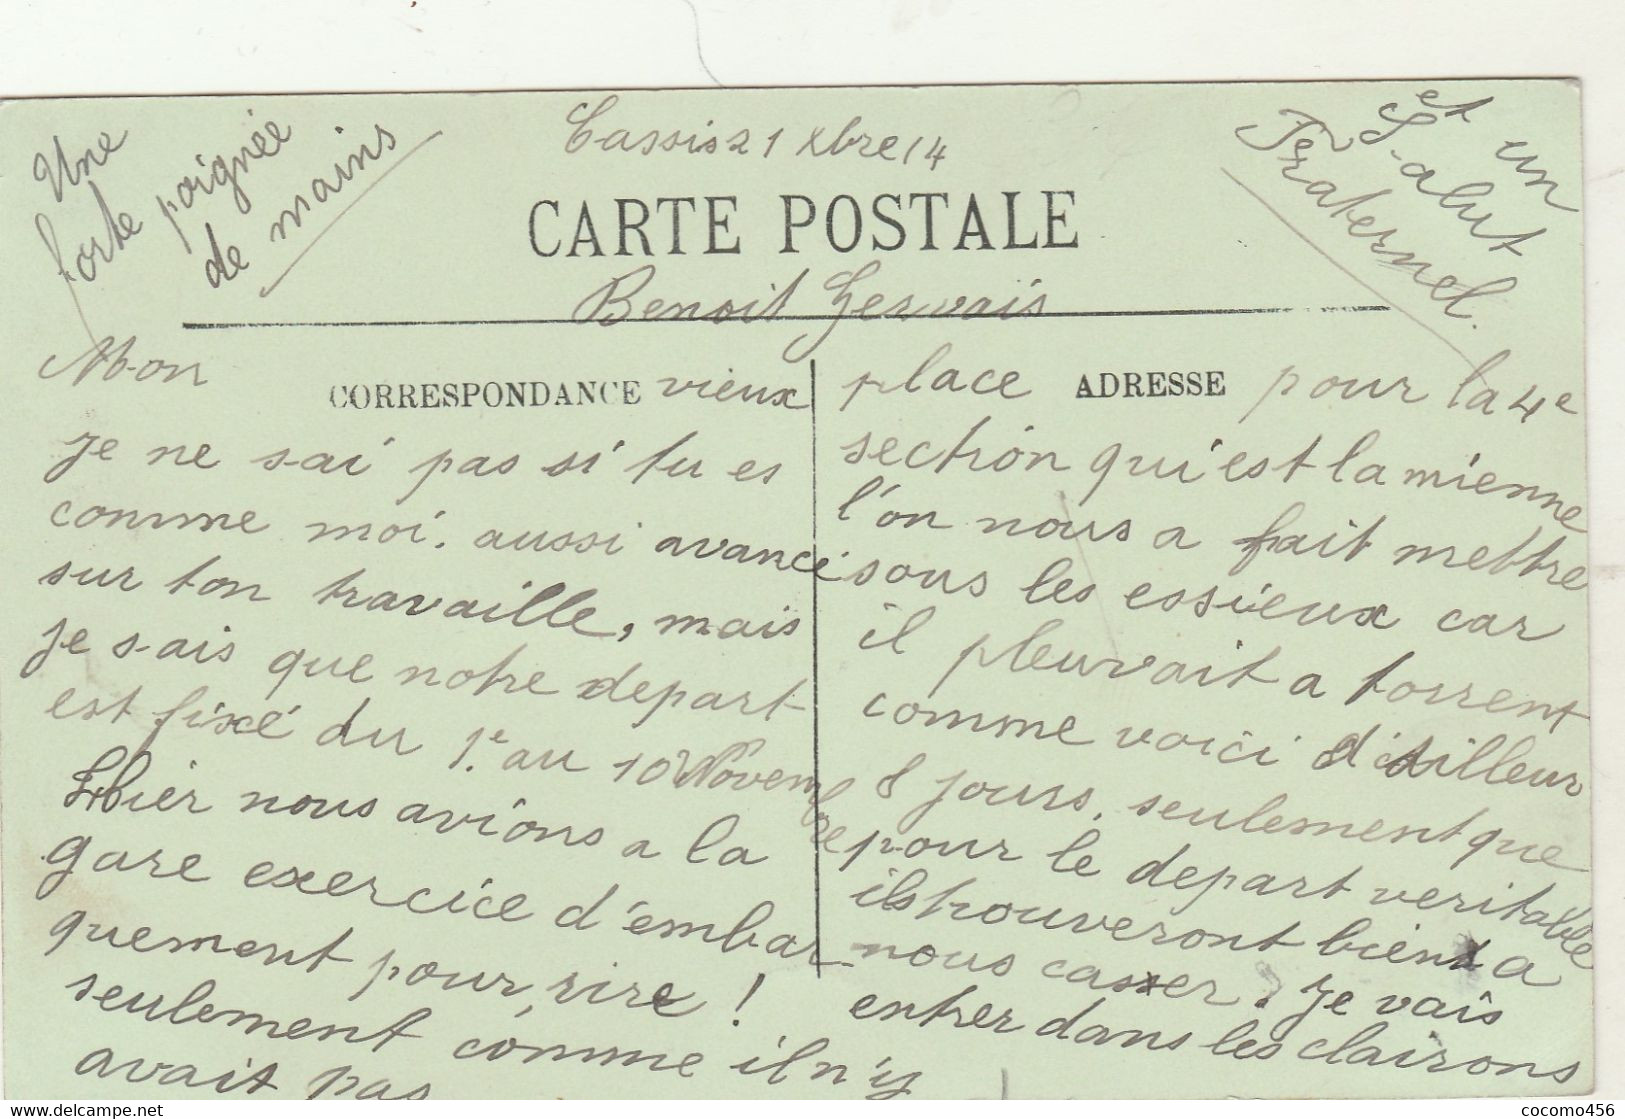 Cassis 21 Xbre 14
Une
forte poignée
de mains
et un
Salut
Fraternel.
CARTE POSTALE
Benoit Gervais
Mon CORRESPONDANCE vieux
Je ne sai pas si tu es
comme moi. aussi avancé
sur ton travaille, mais
je sais que notre depart
est fixé du 1er au 10 Novembre
Hier nous avions a la
gare exercice d'embar-
quement pour rire !
seulement comme il n'y
avait pas
place ADRESSE pour la 4e
section qui est la mienne
l'on nous a fait mettre
sous les essieux car
il pleuvait a torrent
comme voici d'ailleur
8 jours. seulement que
pour le depart veritable
ils trouveront bien a
nous caser. Je vais
entrer dans les clairons
cocomo456